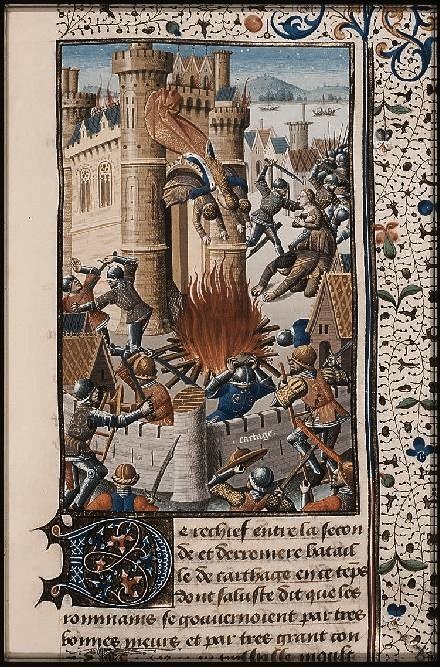 cartage
e rechief entre la secon
de et derreniere batail
le de carthage en ce teps
dont saluste dit que les
rommains se gouuernoient par tres
bonnes meurs et par tres grant con